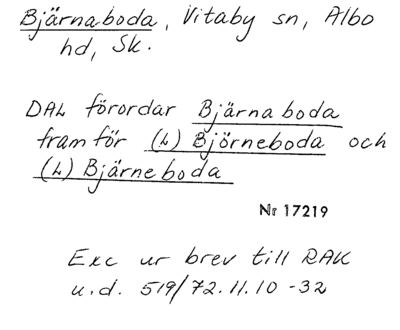 Bjärnaboda, Vitaby sn, Albo
hd, Sk.
DAL förordar Bjärnaboda
framför (L) Björneboda och
(L) Bjärneboda
Nr 17219
Exc ur brev till RAK
u.d. 519/72.11.10 -32